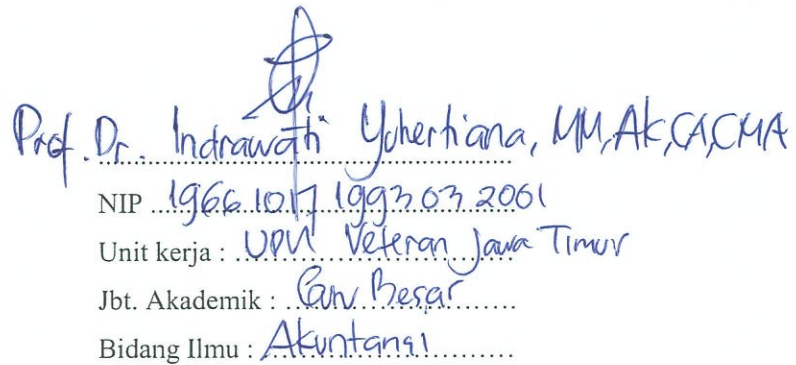 Prof. Dr. Indrawati Yuhertiana, MM, Ak, CA, CMA
NIP 19661017 199303 2001
Unit kerja : UPN Veteran Jawa Timur
Jbt. Akademik : Guru Besar
Bidang Ilmu : Akuntansi